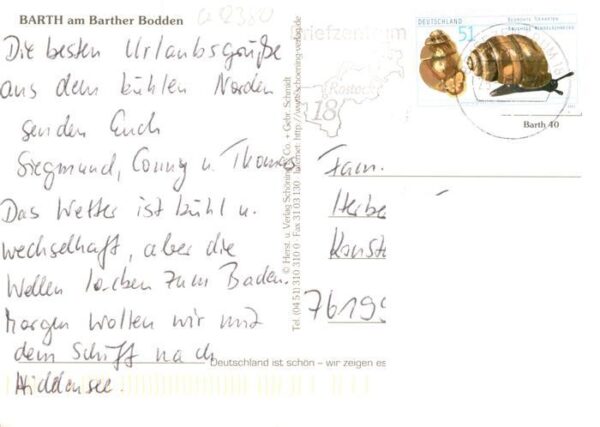 BARTH am Barther Bodden
a 2380
Die besten Urlaubsgrüße
aus dem kühlen Norden
senden Euch
Siegmund, Conny u. Thomas
Das Wetter ist kühl u.
wechselhaft, aber die
Wellen locken zum Baden.
Morgen wollen wir mit
dem Schiff nach
Hiddensee.
© Herst. u. Verlag Schöning & Co. + Gebr. Schmidt
Tel. (04 51) 310 310 0 · Fax 31 03 130 · Internet: http://www.schoening-verlag.de
Briefzentrum
Rostock
18
DEUTSCHLAND 51
Barth 40
Fam.
Herbe
Konst
76199
Deutschland ist schön – wir zeigen es